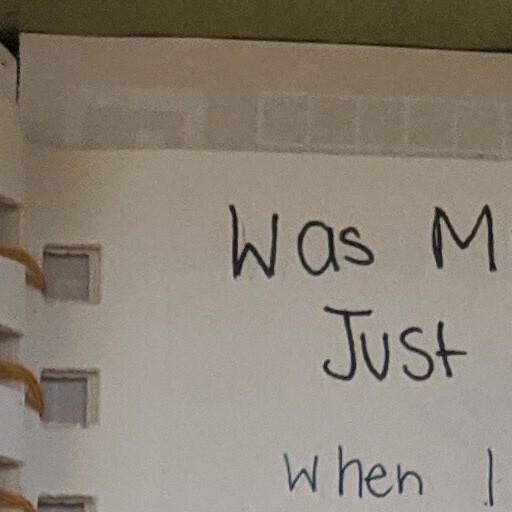 Was M
Just
When I